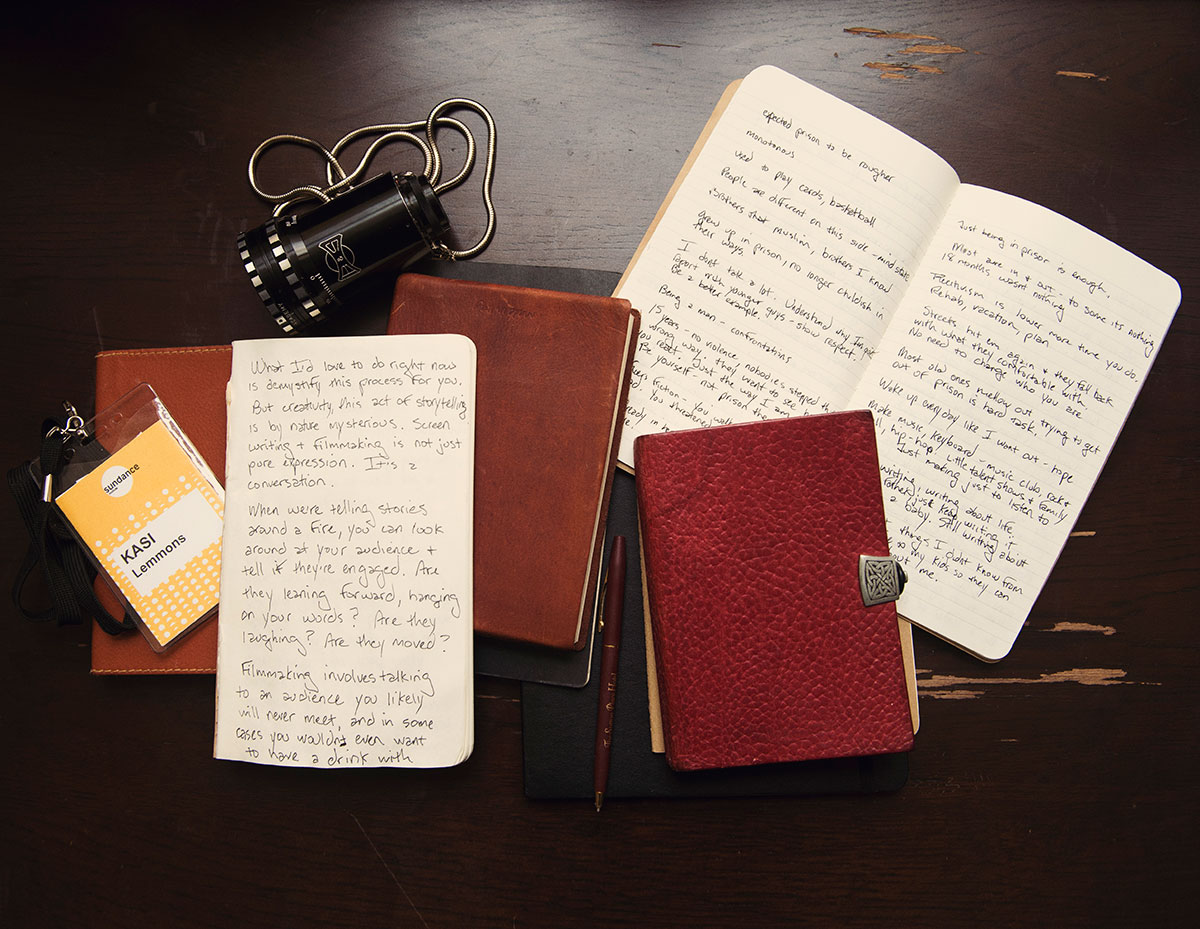 sundance
KASI
Lemmons
What I'd love to do right now
is demystify this process for you.
But creativity, this act of storytelling
is by nature mysterious. Screen
writing + filmmaking is not just
pure expression. It's a
conversation.
When we're telling stories
around a fire, you can look
around at your audience +
tell if they're engaged. Are
they leaning forward, hanging
on your words? Are they
laughing? Are they moved?
Filmmaking involves talking
to an audience you likely
will never meet, and in some
cases you wouldn't even want
to have a drink with
expected prison to be rougher
monotonous
used to play cards, basketball
People are different on this side - mind state
Brothers that muslim, brothers I know
grew up in prison, no longer childish in
their ways.
I don't talk a lot. Understand why
report with younger guys - show respect.
Be a better example.
Being a man - confrontations
15 years - no violence nobodies stepped
wrong way; they want to see how
you react. just the way I am
Be yourself - not prison
fiction - you
you threatened
ready in
Just being in prison is enough.
Most are in + out - to some its nothing
18 months wasn't nothing
Recitivism is lower more time you do.
Rehab, vacation, plan
Streets hit em again + they fall back
with what they comfortable with
No need to change who you are
Most old ones mellow out trying to get
out of prison is hard task.
Wake up everyday like I want out - hope
Make music, keyboard - music club, rock +
hip-hop. Little talent shows + family
Just making just to listen to
writing, writing about life.
just keep writing it
a baby. Still writing about
things I didn't know from
so my kids so they can
about me.